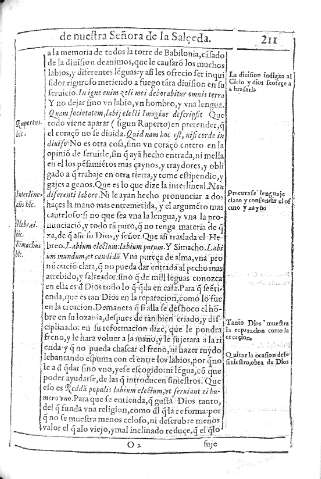 de nuestra Señora de la Salçeda. 211
a la memoria de todos la torre de Babilonia, causado
de la diuision de animos, que le causarõ los muchos
labios, y diferentes lẽguas, y así les ofrecio ser inqui
sidor riguroso metiendo a fuego tãta diuision en su
seruicio. In igne enim zeli mei deuorabitur omnis terra
Y no dejar sino vn labio, vn hombre, y vna lengua.
Quam societatem, labij electi Imagine descripsit Que
todo viene aparar (sigun Ruperto) en pretender, q̃
el coraçõ no se diuida. Quid nam hoc est, nisi corde in
diuiso? No es otra cosa, sino vn coraçõ entero en la
opiniõ de seruirle, sin q̃ aya hecho entrada, ni mella
en el los pẽsamiẽtos mas çaynos, y traydores, y obli
gado a q̃ trabaje en otra tierra, y tome estipendio, y
gajes a genos. Que es lo que dize la interlineal. Nan
deferenti labore. Ni le ayan hecho pronunciar a dos
hazes la mano mas entremetida, y el argumẽto mas
cauteloso: si no que sea vna la lengua, y vna la pro-
nunciació, y todo tã puro, q̃ no tenga materia de q̃
xa, de q̃ asir su Dios, y señor. Que así traslada el He
breo. Labium electum: labium purum. Y Simacho. Labi
um mundum, et candidũ. Vna pureça de alma, vna pro
nũciació clara, q̃ no pueda dar entrada al pecho mas
atreuido, y falteador: sinó q̃ de mil leguas conozca
en ella es d̃ Dios todo lo q̃ q̃da en casa. Para q̃ se ẽtti
enda, que es tan Dios en la reparacion, como lo fue
en la creacion. Demanera q̃ si alla se desboco el hõ-
bre en la loçania, despues de tan biẽn criado, y dis
ciplinado: en su reformacion dize, que le pondra
freno, y le hara voluer a la mano, y le sujetara a la ri
enda: y q̃ no pueda chascar el freno, ni hazer ruydo
lebantando espuma con el entre los labios, por q̃ no
le a d̃ q̃dar sino vno, y ese escogido: ni lẽgua, cõ que
poder ayudarse, de las q̃ introducen siniestros. Que
eso es Reddã populis labium electum, et seruiant ei hu-
mero vno. Para que se entienda, q̃ gusta Dios tanto,
del q̃ funda vna religion, como dl q̃ la reforma: por
q̃ no se muestra menos celoso, ni descubre menos
valor el q̃ alo viejo, y mal inclinado reduce, q̃ el q̃ lo
O 2 suje
La diuision indigna al
Cielo y dios sosiega a
a brasado
Rupertus.
hic.
Interline-
alis hic.
Precursor lenguaje
claro y conoscer el ofi
cio y ayuno
Hebrai.
hic.
Simachus
hic.
Tanto Dios muestra
la reparacion como la
creacion.
Quitar la ocasion de los
siniestros, obra de Dios